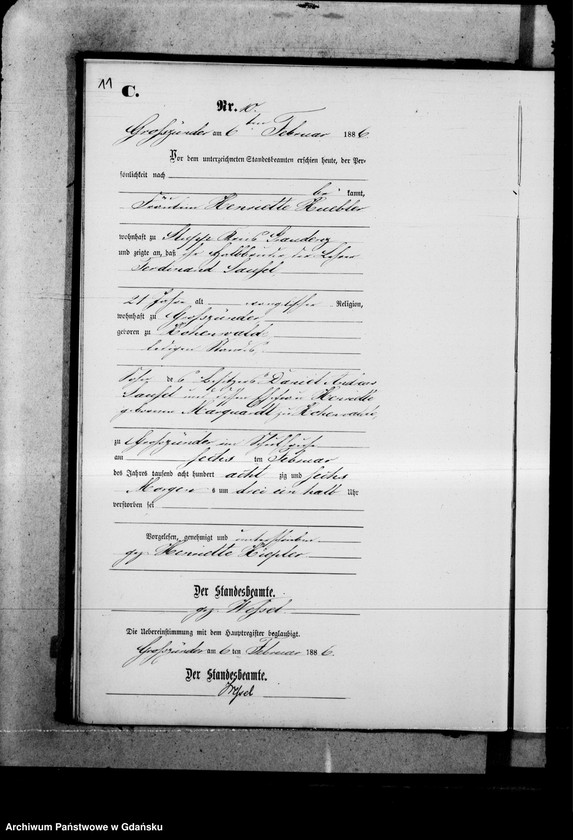 11
C.
Nr. 10.
Großzünder am 6ten Februar 1886.
Vor dem unterzeichneten Standesbeamten erschien heute, der Per-
sönlichkeit nach
be kannt,
Fräulein Henriette
wohnhaft zu Kreis Graudenz
und zeigte an, daß ihr Halbbruder der Lehrer
Ferdinand
21 Jahre alt evangelischer Religion,
wohnhaft zu Großzünder
geboren zu Hohenwald
ledigen Standes,
Sohn des Besitzers Daniel
und dessen Ehefrau Henriette
geborenen Marquardt zu Hohenwald
zu Großzünder im Schulhause
am sechs ten Februar
des Jahres tausend acht hundert acht zig und sechs
Morgen s um drei ein halb Uhr
verstorben sei
Vorgelesen, genehmigt und unterschrieben
gez. Henriette
Der Standesbeamte.
gez. Wessel.
Die Uebereinstimmung mit dem Hauptregister beglaubigt.
Großzünder am 6 ten Februar 1886.
Der Standesbeamte.
Wessel
Archiwum Państwowe w Gdańsku